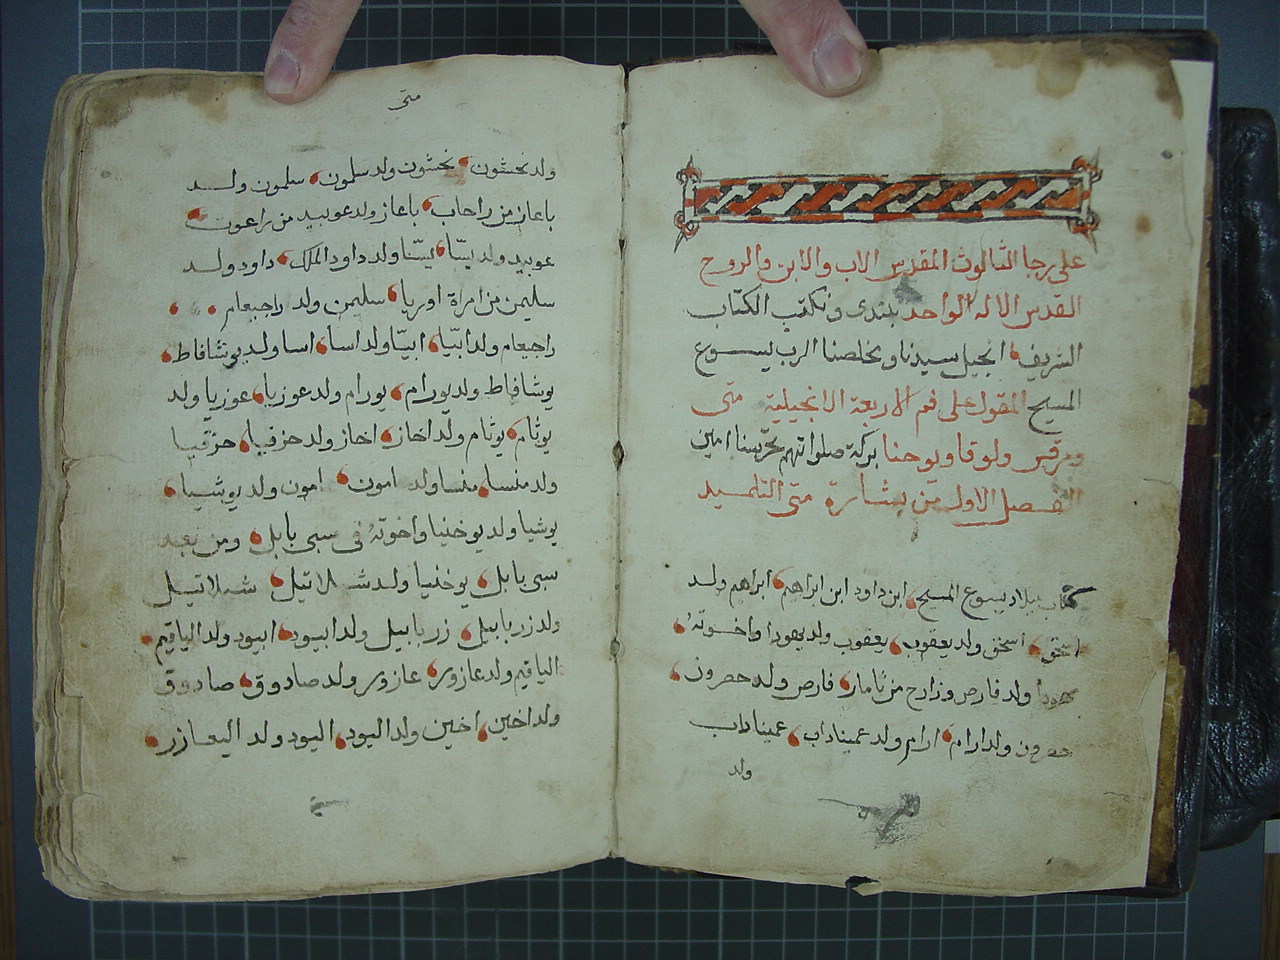 على رجا الثالوث المقدس الاب والابن والروح
القدس الاله الواحد نبتدى ونكتب الكتاب
الشريف انجيل سيدنا ومخلصنا الرب يسوع
المسيح المقول على فم الاربعة الانجيلية متى
ومرقس ولوقا ويوحنا بركة صلواتهم تحرسنا امين
الفصل الاول من بشارة متى التلميد
كتاب ميلاد يسوع المسيح ابن داود ابن ابراهيم ابراهيم ولد
اسحق اسحق ولد يعقوب يعقوب ولد يهودا واخوته
يهودا ولد فارص وزارح من ثامار فارص ولد حصرون
حصرون ولد ارام ارام ولد عميناداب عميناداب
ولد
متى
ولد نحشون نحشون ولد سلمون سلمون ولد
باعاز من راحاب باعاز ولد عوبيد من راعوت
عوبيد ولد يسّا يسّا ولد داود الملك داود ولد
سليمن من امراة اوريا سليمن ولد راجبعام
راجبعام ولد ابيّا ابيّا ولد اسا اسا ولد يوشافاط
يوشافاط ولد يورام يورام ولد عوزيا عوزيا ولد
يوثام يوثام ولد اخاز اخاز ولد حزقيا حزقيا
ولد منسا منسا ولد امون امون ولد يوشيا
يوشيا ولد يوخنيا واخوته في سبى بابل ومن بعد
سبى بابل يوخنيا ولد شلاتيل شلاتيل
ولد زربابيل زربابيل ولد ابيود ابيود ولد الياقيم
الياقيم ولد عازور عازور ولد صادوق صادوق
ولد اخين اخين ولد اليود اليود ولد اليعازر